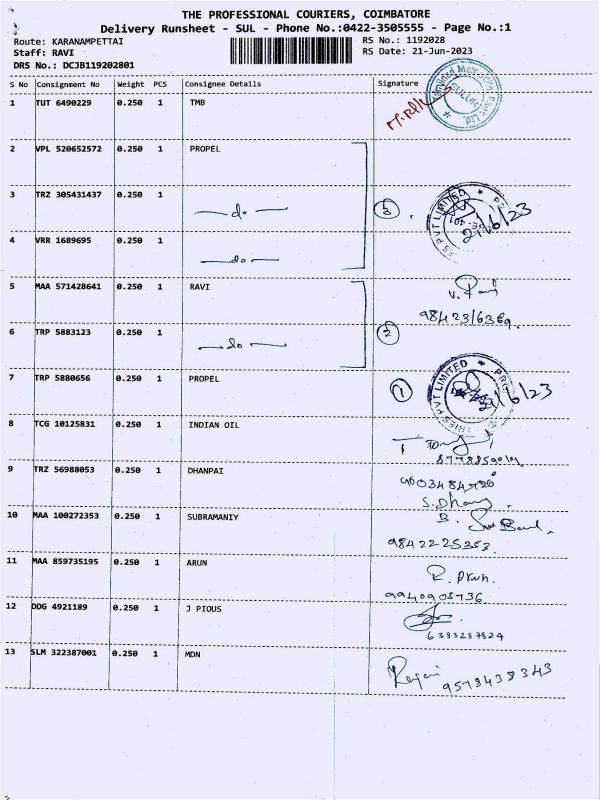 THE PROFESSIONAL COURIERS, COIMBATORE
Delivery Runsheet - SUL - Phone No.:0422-3505555 - Page No.:1
Route: KARANAMPETTAI RS No.: 1192028
Staff: RAVI RS Date: 21-Jun-2023
DRS No.: DCJB119202801
S No Consignment No Weight PCS Consignee Details Signature
1 TUT 6490229 0.250 1 TMB
SULUR
2 VPL 520652572 0.250 1 PROPEL
3 TRZ 305431437 0.250 1 —do— 3 21/6/23
PVT LIMITED
4 VRR 1689695 0.250 1 —do—
5 MAA 571428641 0.250 1 RAVI V. Ravi
9842316369
6 TRP 5883123 0.250 1 —do— 2
7 TRP 5880656 0.250 1 PROPEL 1 21/6/23
PVT LIMITED
8 TCG 10125831 0.250 1 INDIAN OIL
9 TRZ 56988053 0.250 1 DHANPAI
10 MAA 100272353 0.250 1 SUBRAMANIY
9842225353
11 MAA 859735195 0.250 1 ARUN
9940905736
12 DDG 4921189 0.250 1 J PIOUS
6383287824
13 SLM 322387001 0.250 1 MDN
9578438343